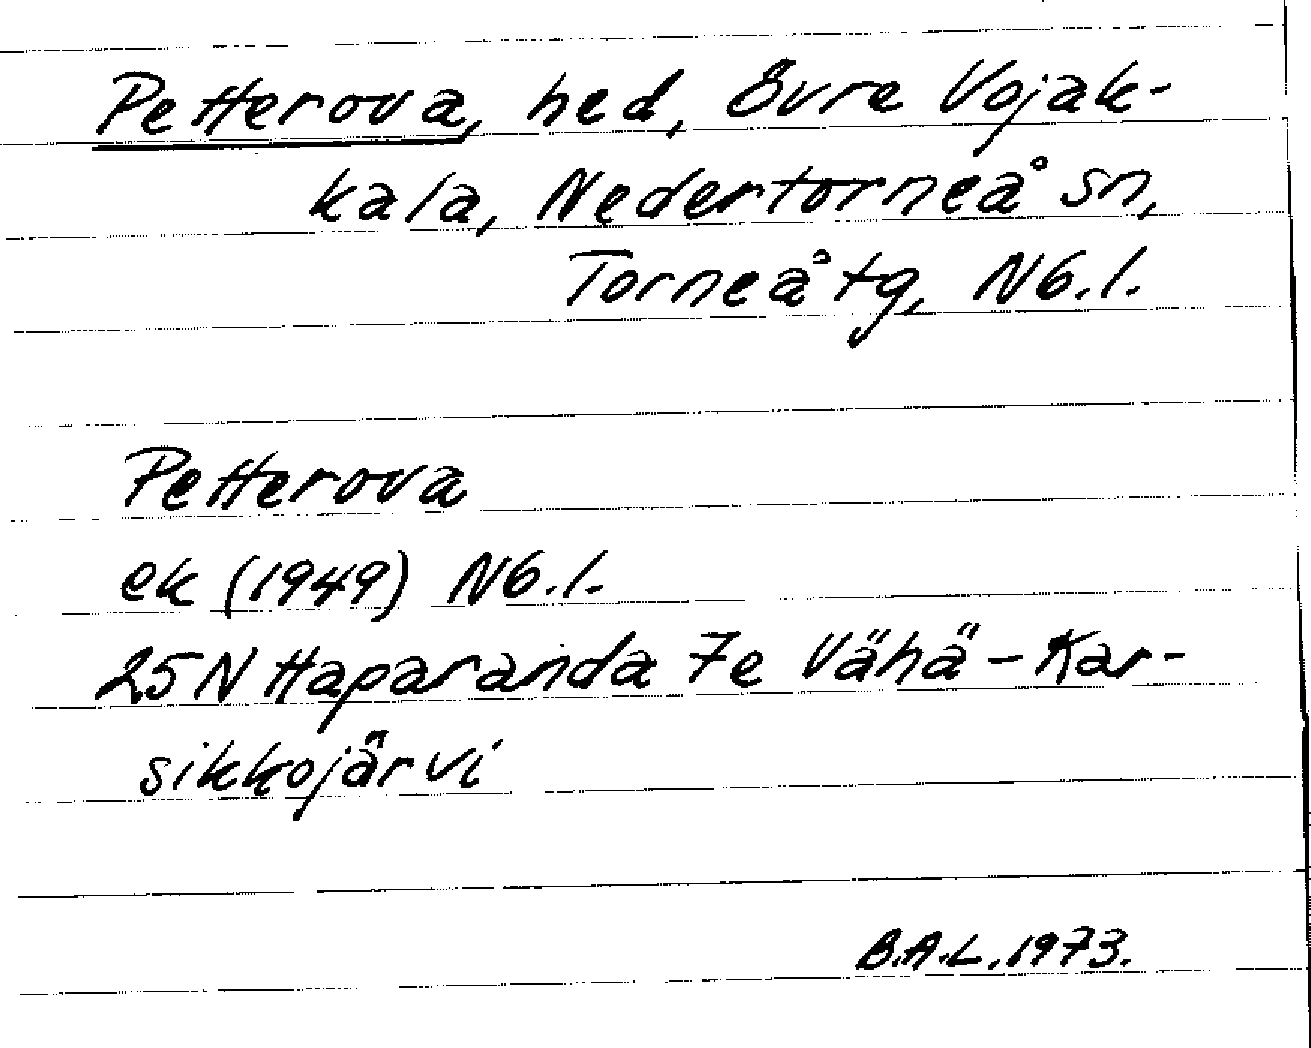 Petterova, hed, Övre Vojak-
kala, Nedertorneå sn,
Torneå tg, Nb.l.
Petterova
ek (1949) Nb.l.
25N Haparanda 7e Vähä-Kar-
sikkojärvi
B.A.L. 1973.